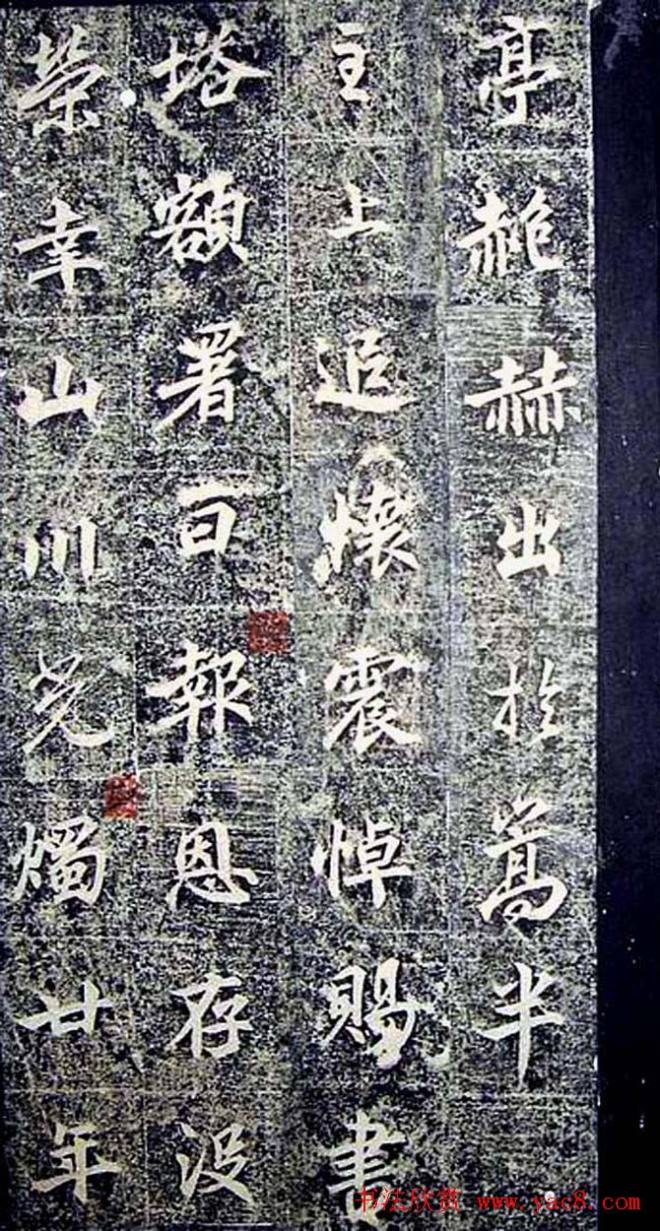 亭赩赫出於嵩半
主上追懷震悼賜書
塔額署曰報恩存没
榮幸山川光燭廿年
书法欣赏 www.yac8.com